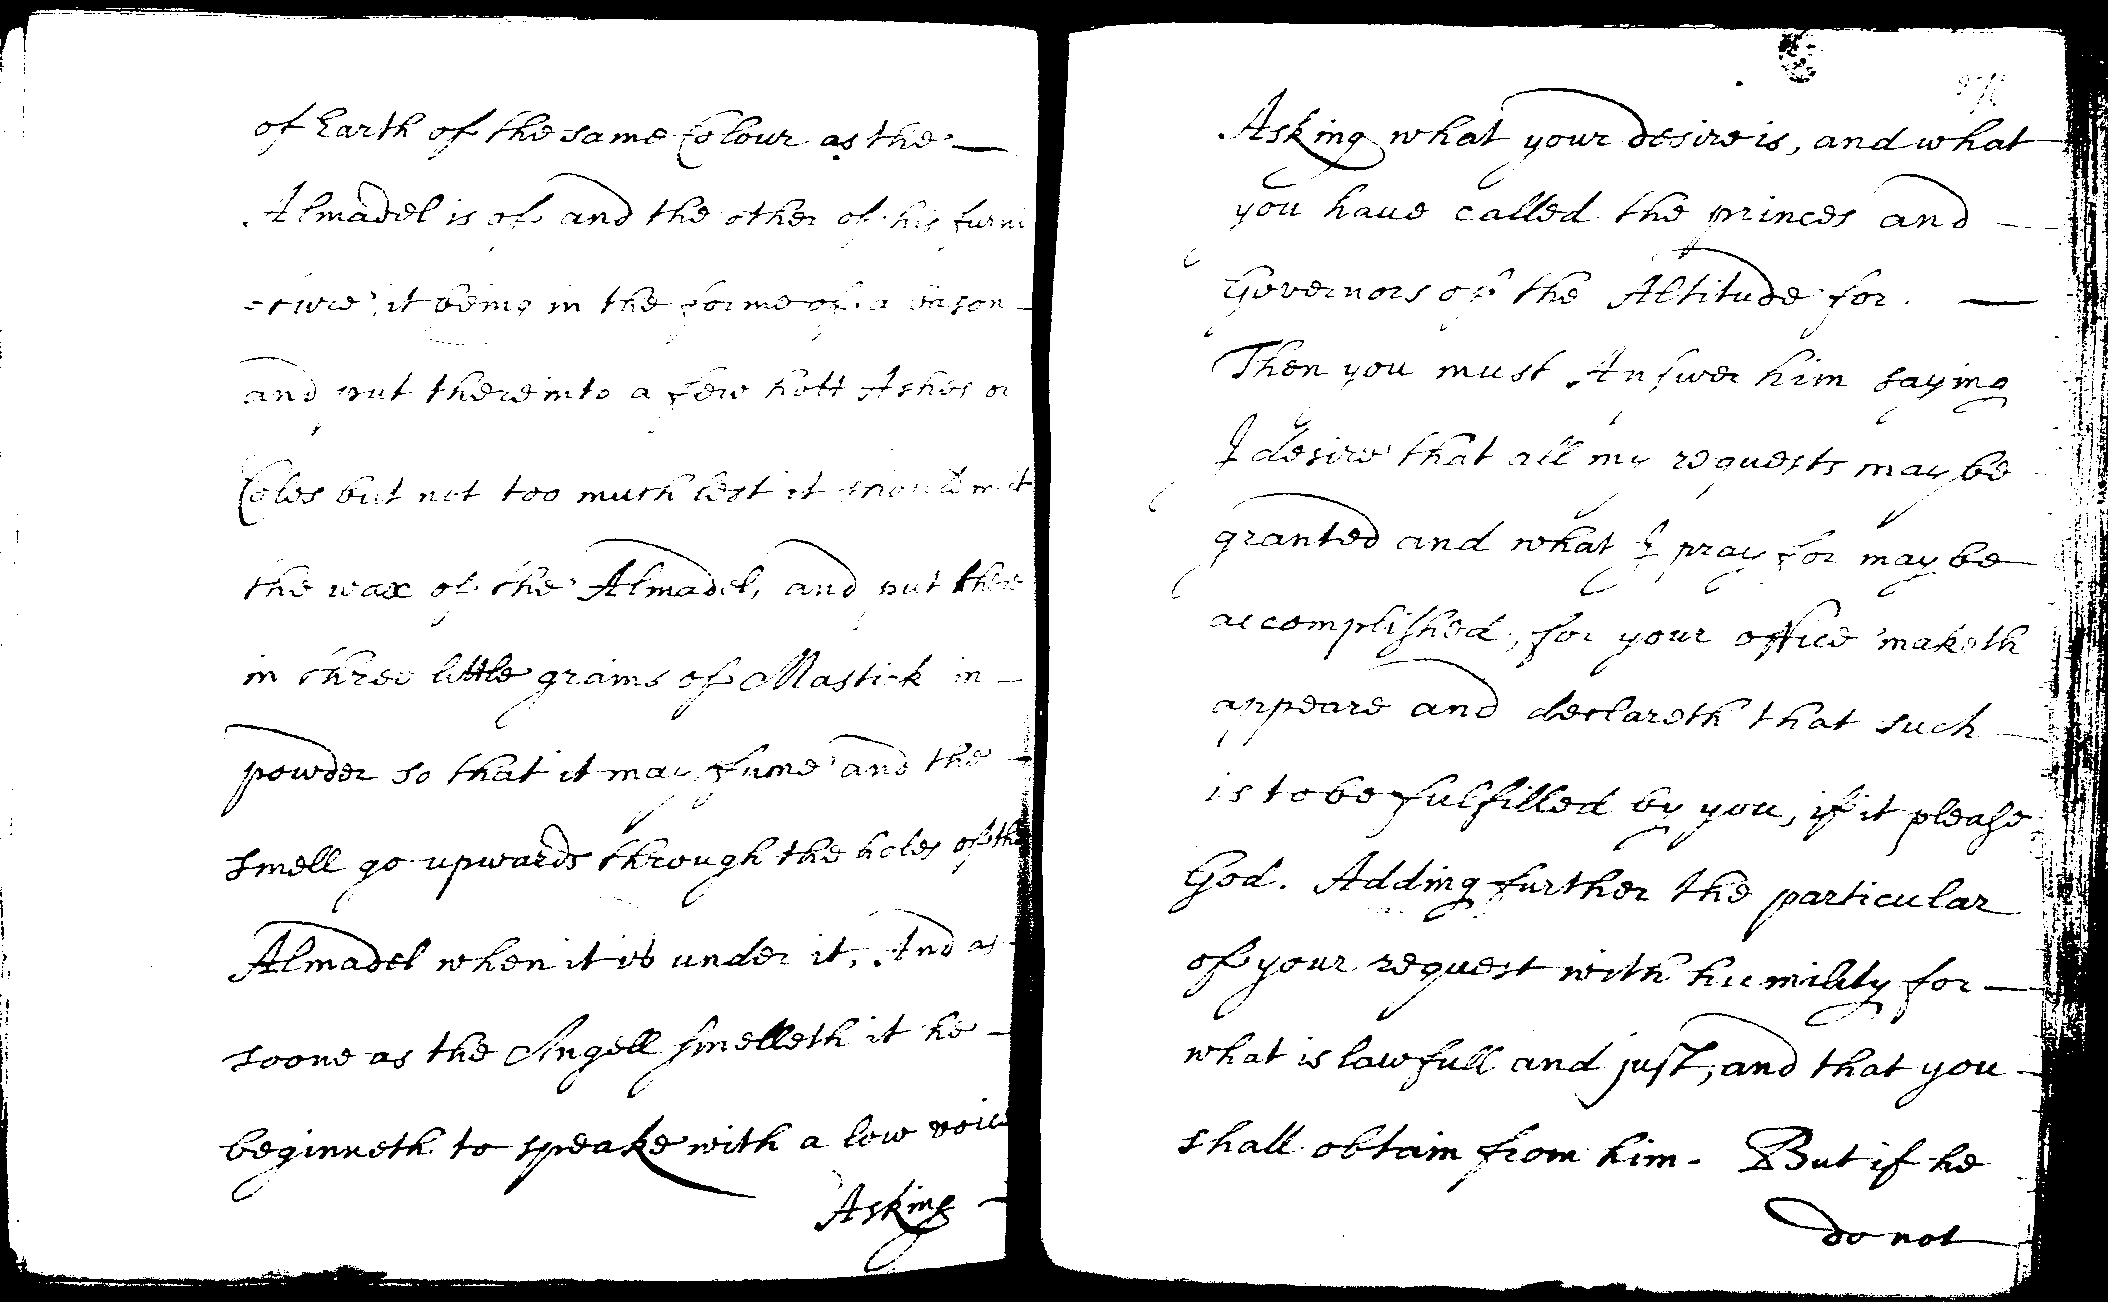 of Earth of the same Colour as the —
Almadel is of and the other of his furni
=ture, it being in the forme of a bason —
and put thereinto a few hott Ashes or
Coles but not too much lest it should melt
the wax of the Almadel, and put there
in three little grains of Mastick in —
powder so that it may fume and the —
smell go upwards through the holes of the
Almadel when it is under it, And as
soone as the Angell smelleth it he —
beginneth to speake with a low voice
Asking —
Asking what your desire is, and what
you haue called the princes and —
Governors of the Altitude for. —
Then you must Answer him saying
I desire that all my requests may be
granted and what I pray for may be
accomplished, for your office maketh
appeare and declareth that such —
is to be fulfilled by you, if it please
God. Adding further the particular
of your request with humility for —
what is lawfull and just, and that you —
shall obtain from him. But if he
do not